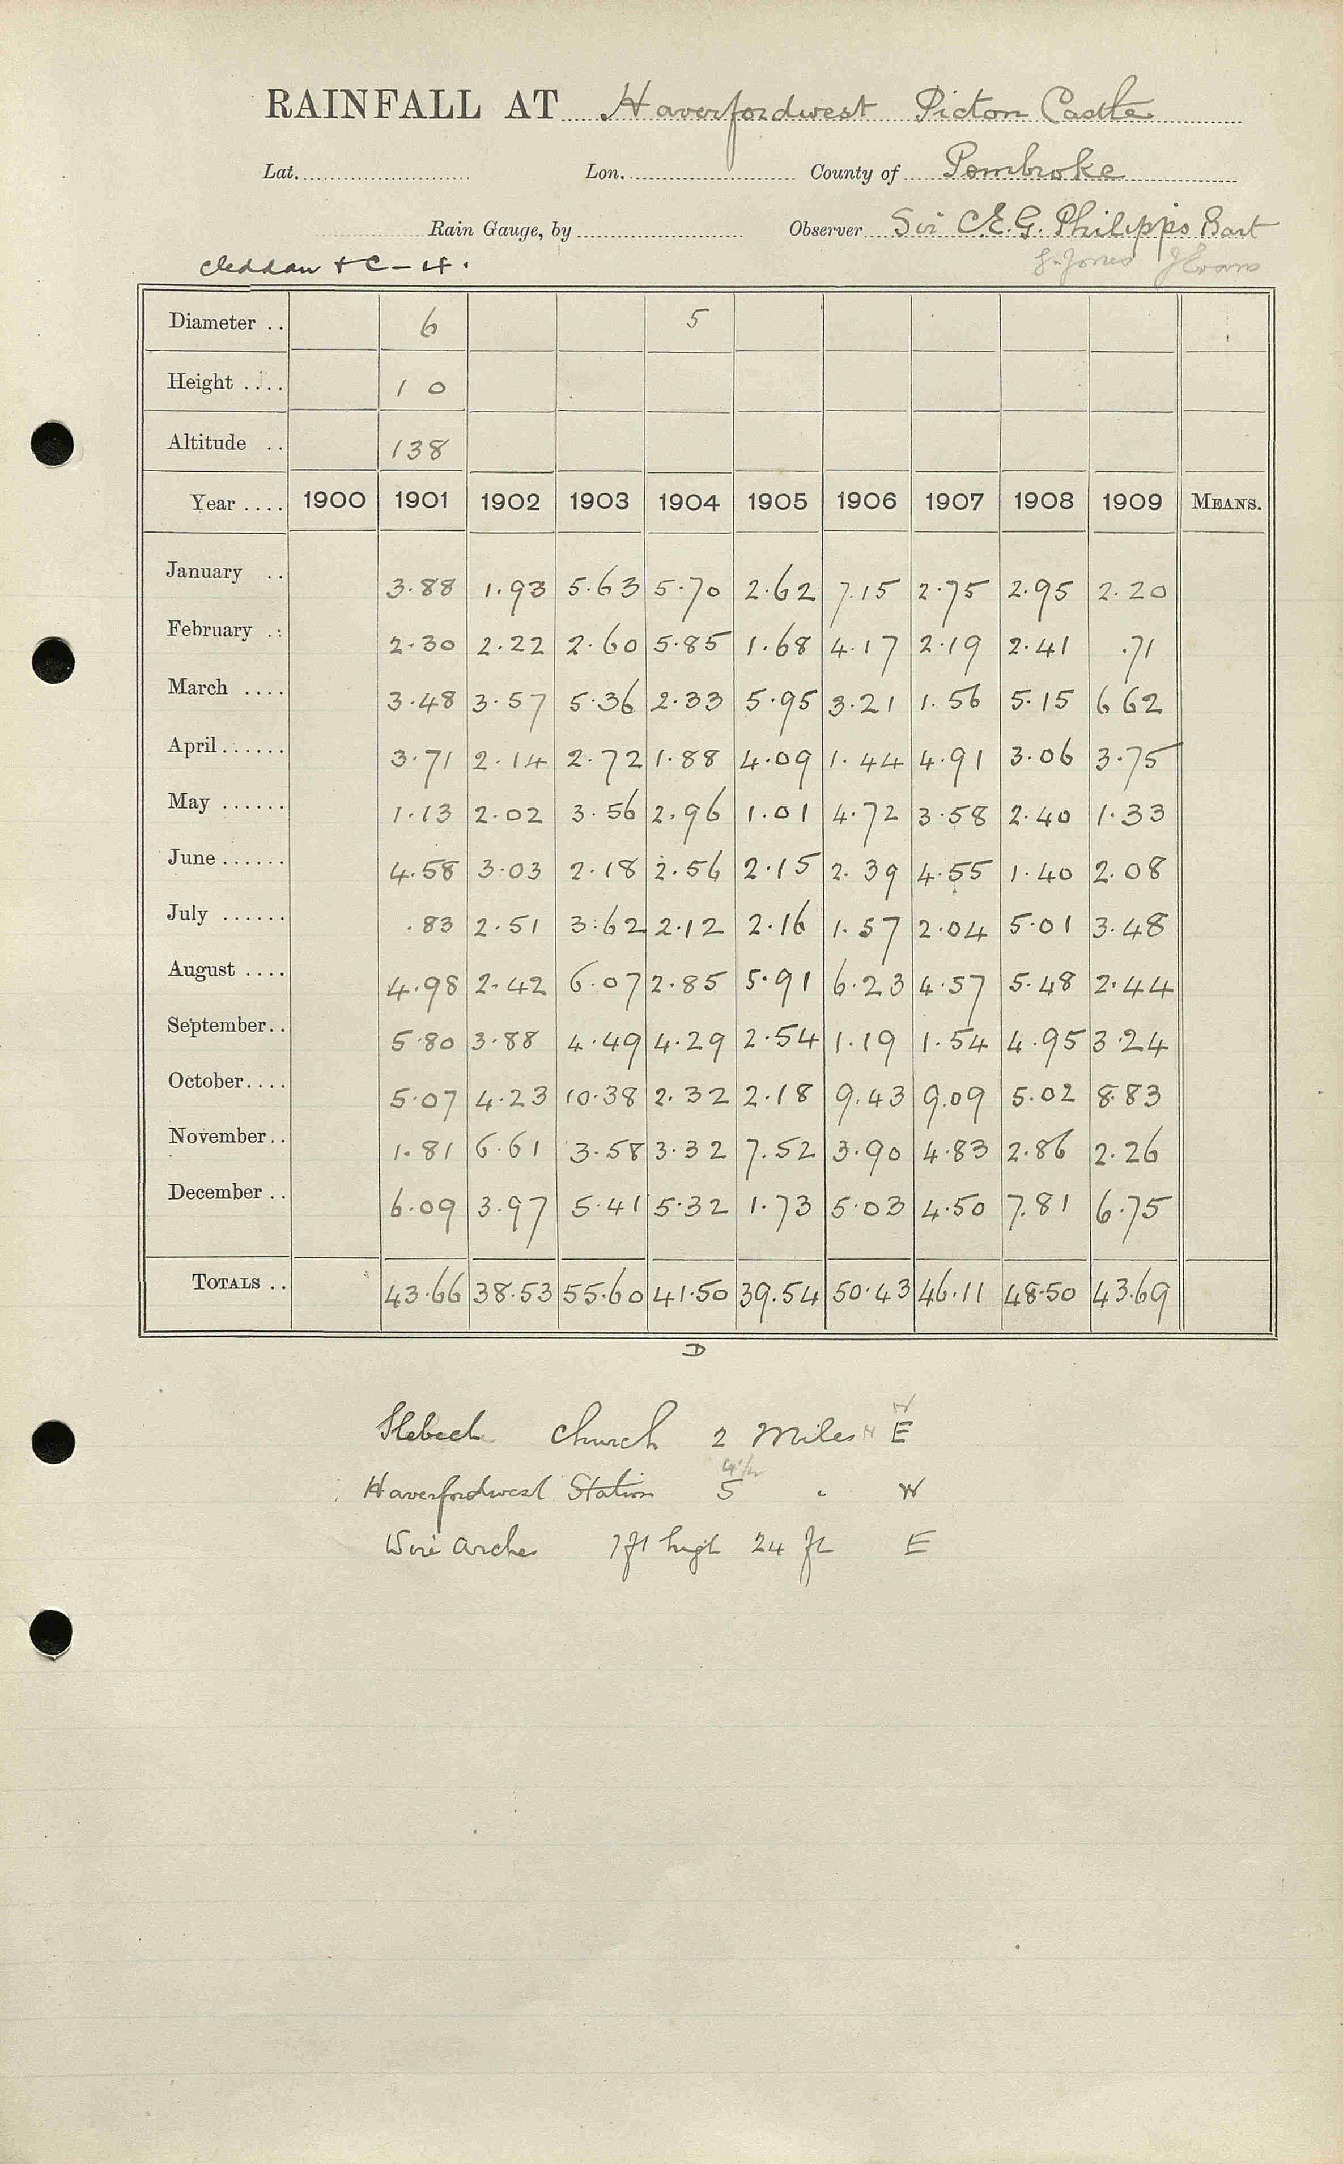 RAINFALL AT Haverfordwest Picton Castle
Lat. Lon. County of Pembroke
Rain Gauge, by Observer Sir C.E.G. Philipps Bart
Cleddau & C - 4. G. Jones J Evans
Diameter .. 6 5
Height .... 1 0
Altitude .. 138
Year .... 1900 1901 1902 1903 1904 1905 1906 1907 1908 1909 MEANS.
January .. 3.88 1.93 5.63 5.70 2.62 7.15 2.75 2.95 2.20
February .. 2.30 2.22 2.60 5.85 1.68 4.17 2.19 2.41 .71
March .... 3.48 3.57 5.36 2.33 5.95 3.21 1.56 5.15 6 62
April ...... 3.71 2.14 2.72 1.88 4.09 1.44 4.91 3.06 3.75
May ...... 1.13 2.02 3.56 2.96 1.01 4.72 3.58 2.40 1.33
June ...... 4.58 3.03 2.18 2.56 2.15 2.39 4.55 1.40 2.08
July ...... .83 2.51 3.62 2.12 2.16 1.57 2.04 5.01 3.48
August .... 4.98 2.42 6.07 2.85 5.91 6.23 4.57 5.48 2.44
September.. 5.80 3.88 4.49 4.29 2.54 1.19 1.54 4.95 3.24
October.... 5.07 4.23 10.38 2.32 2.18 9.43 9.09 5.02 8.83
November.. 1.81 6.61 3.58 3.32 7.52 3.90 4.83 2.86 2.26
December .. 6.09 3.97 5.41 5.32 1.73 5.03 4.50 7.81 6.75
TOTALS .. 43.66 38.53 55.60 41.50 39.54 50.43 46.11 48.50 43.69
D
Slebech Church 2 Miles E
4½
Haverfordwest Station 5 " W
Wire Arches 7 ft high 24 ft E